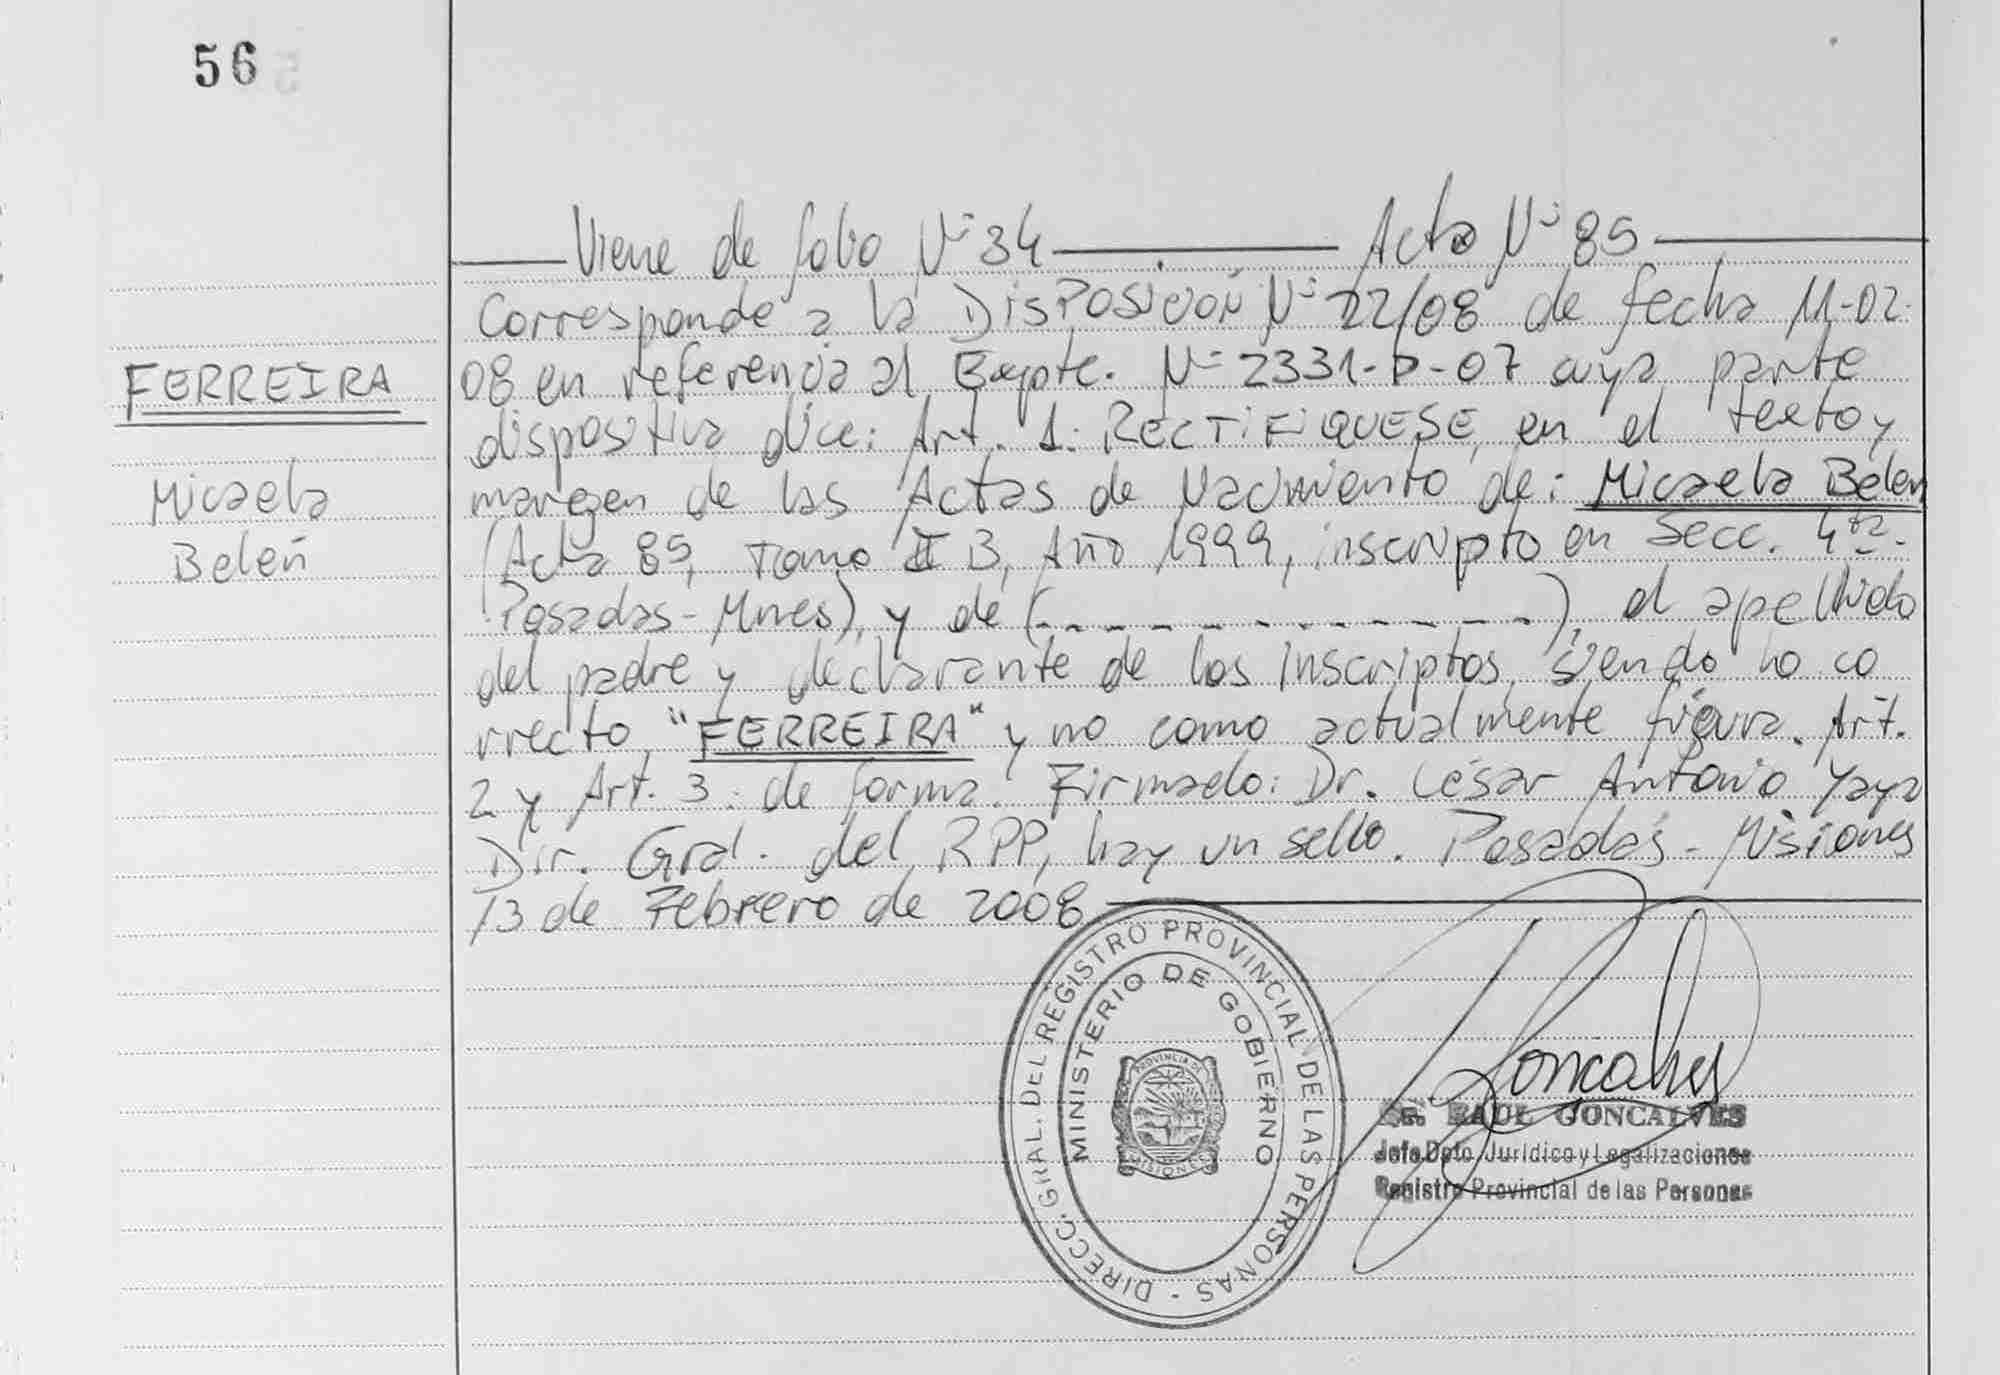 56
Viene de folio Nº 34 Acta Nº 85
Corresponde a la Disposición Nº 22/08 de fecha 11-02-
FERREIRA
08 en referencia al Expte. Nº 2331-D-07 cuya parte
dispositiva dice: Art. 1: RECTIFIQUESE, en el texto y
Micaela
margen de las Actas de Nacimiento de: Micaela Belen
Belén
(Acta 85, Tomo II B, Año 1999, inscripto en Secc. 4ta.
Posadas-Mnes), y de (- - - - - - - - - - - - -), el apellido
del padre y declarante de los inscriptos, siendo lo co
rrecto, "FERREIRA" y no como actualmente figura. Art.
2 y Art. 3: de forma. Firmado: Dr. César Antonio Yaya
Dir. Gral. del RPP, hay un sello. Posadas - Misiones
13 de Febrero de 2008
DIRECC. GRAL. DEL REGISTRO PROVINCIAL DE LAS PERSONAS -
MINISTERIO DE GOBIERNO
PROVINCIA DE
MISIONES
Goncalves
RAUL GONCALVES
Jefe Dpto. Jurídico y Legalizaciones
Registro Provincial de las Personas